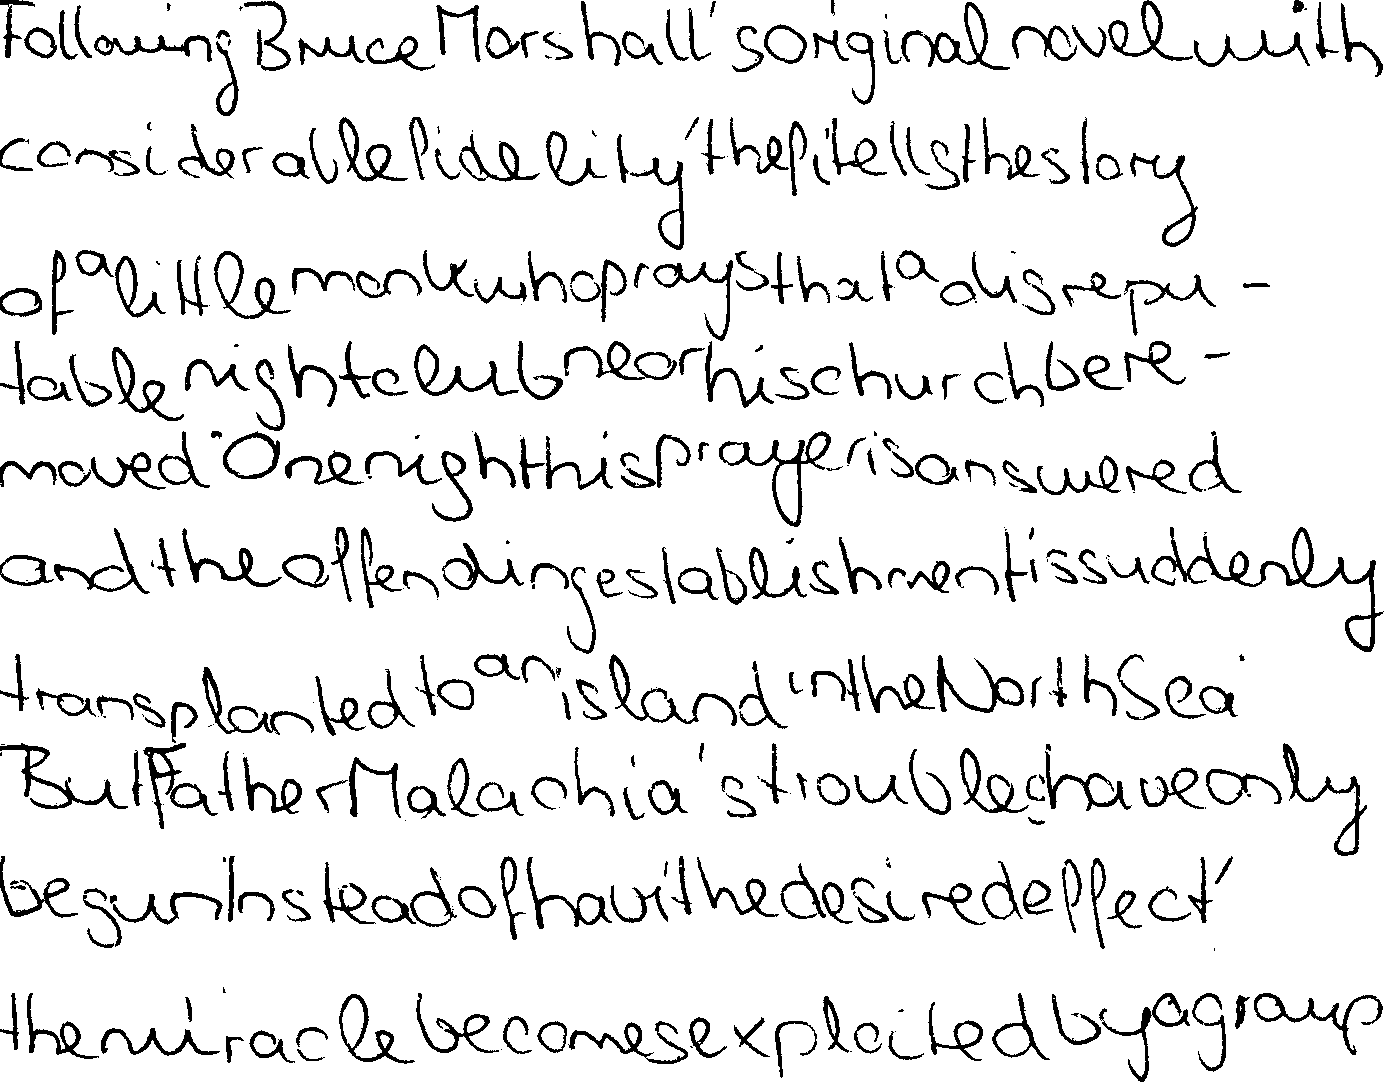 Following Bruce Marshall's original novel with
considerable fidelity, the fi tells the story
of a little monk who prays that a disrepu-
table nightclub near his church be re-
moved. One night his prayer is answered
and the offending establishment is suddenly
transplanted to an island in the North Sea.
But Father Malachia's troubles have only
begun. Instead of havi the desired effect,
the miracle becomes exploited by a group